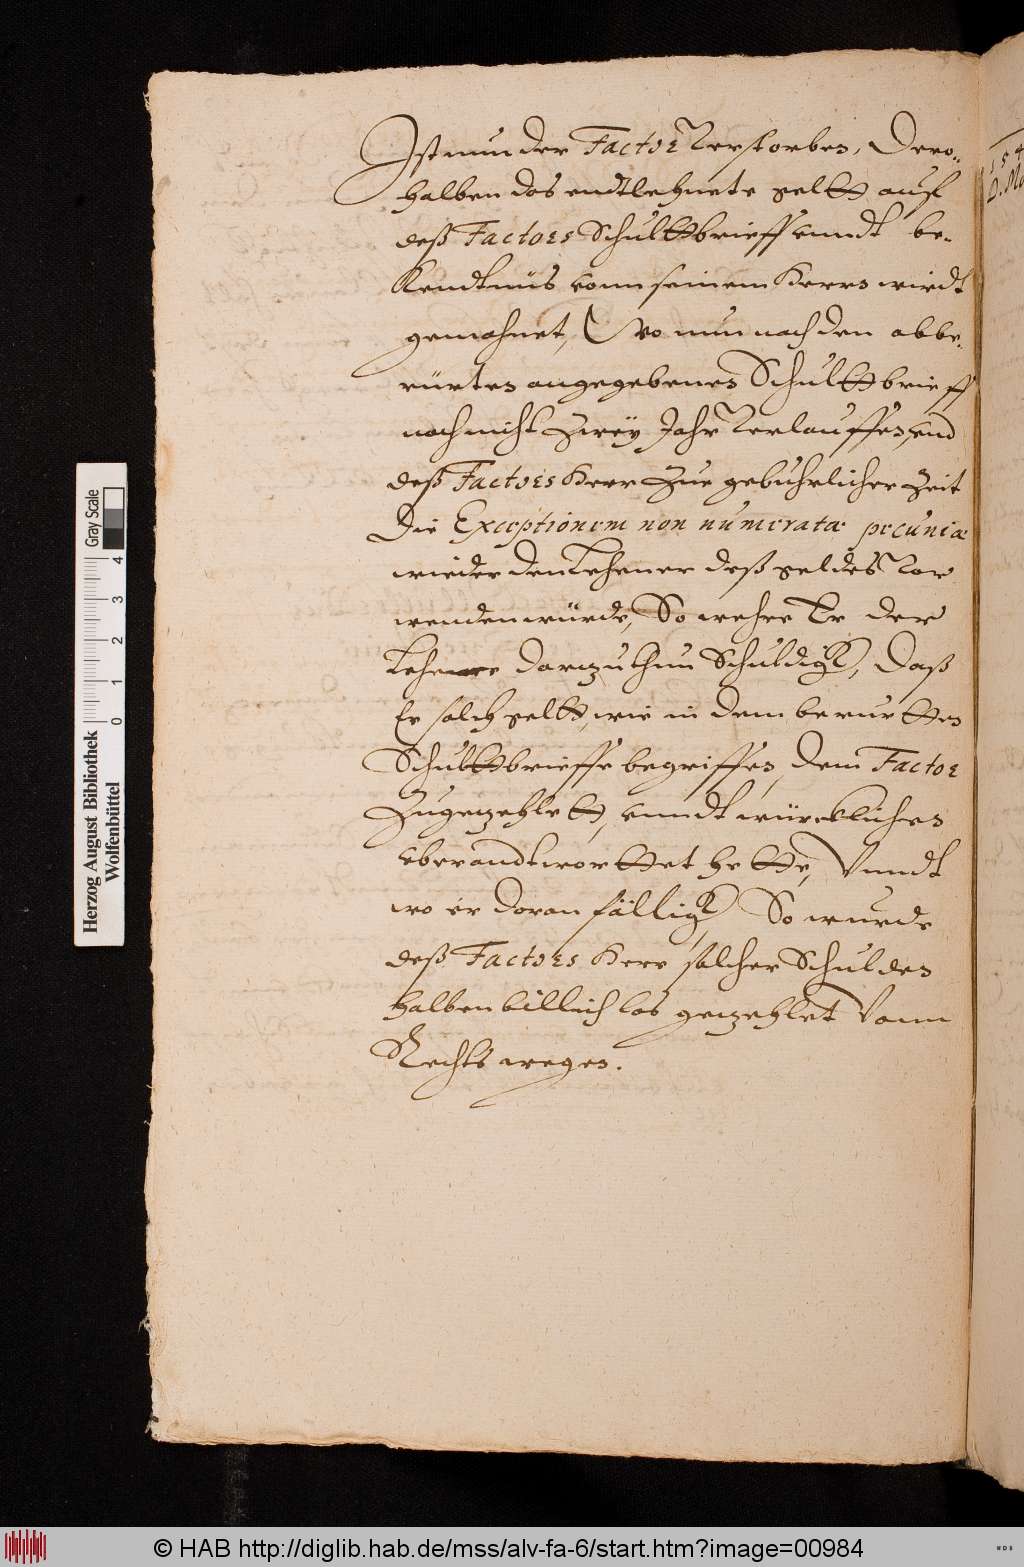 Ist nun der Factor Verstorben, Dero-
halben das endtlehnete geltt auf
deß Factors Schulttbrieff unndt be-
kendtnüs vonn seinem Herrn wirdt
gemahnet, Wo nun nach den abbe-
rürten angegebenen Schulttbrieff
noch nicht Zwey Jahr Verlauffen, und
deß Factors Herr Zue gebuhrlicher Zeit
Die Exceptionem non numeratæ pecuniæ
wieder den Lehener deß geldes Vor
wenden würde, So wehre Er der
Lehener darzu thun Schuldigk, Daß
Er solch geltt, wie in dem berurtten
Schulttbrieffe begriffen, dem Factor
Zugezehlett, unndt würcklichen
uberandtworttet hette, Vnndt
wo er daran fällig, So wurde
deß Factors Herr solcher Schulden
halben billich los gezehlet Vonn
Rechts wegen.
154
D. Ma
Herzog August Bibliothek
Wolfenbüttel
0 1 2 3 4
Gray Scale
© HAB http://diglib.hab.de/mss/alv-fa-6/start.htm?image=00984
WDB